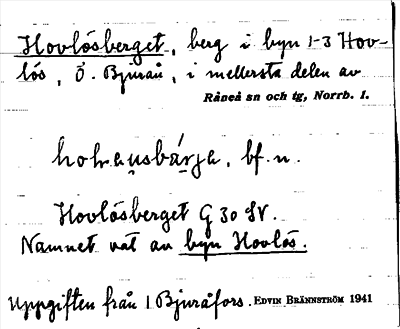 Hovlösberget, berg i byn 1-3 Hov-
lös, Ö. Bjuraå, i mellersta delen av
Råneå sn och tg, Norrb. l.
bf. n.
Hovlösberget G 30 SV.
Namnet vat av byn Hovlös.
Uppgiften från 1 Bjuråfors. EDVIN BRÄNNSTRÖM 1941